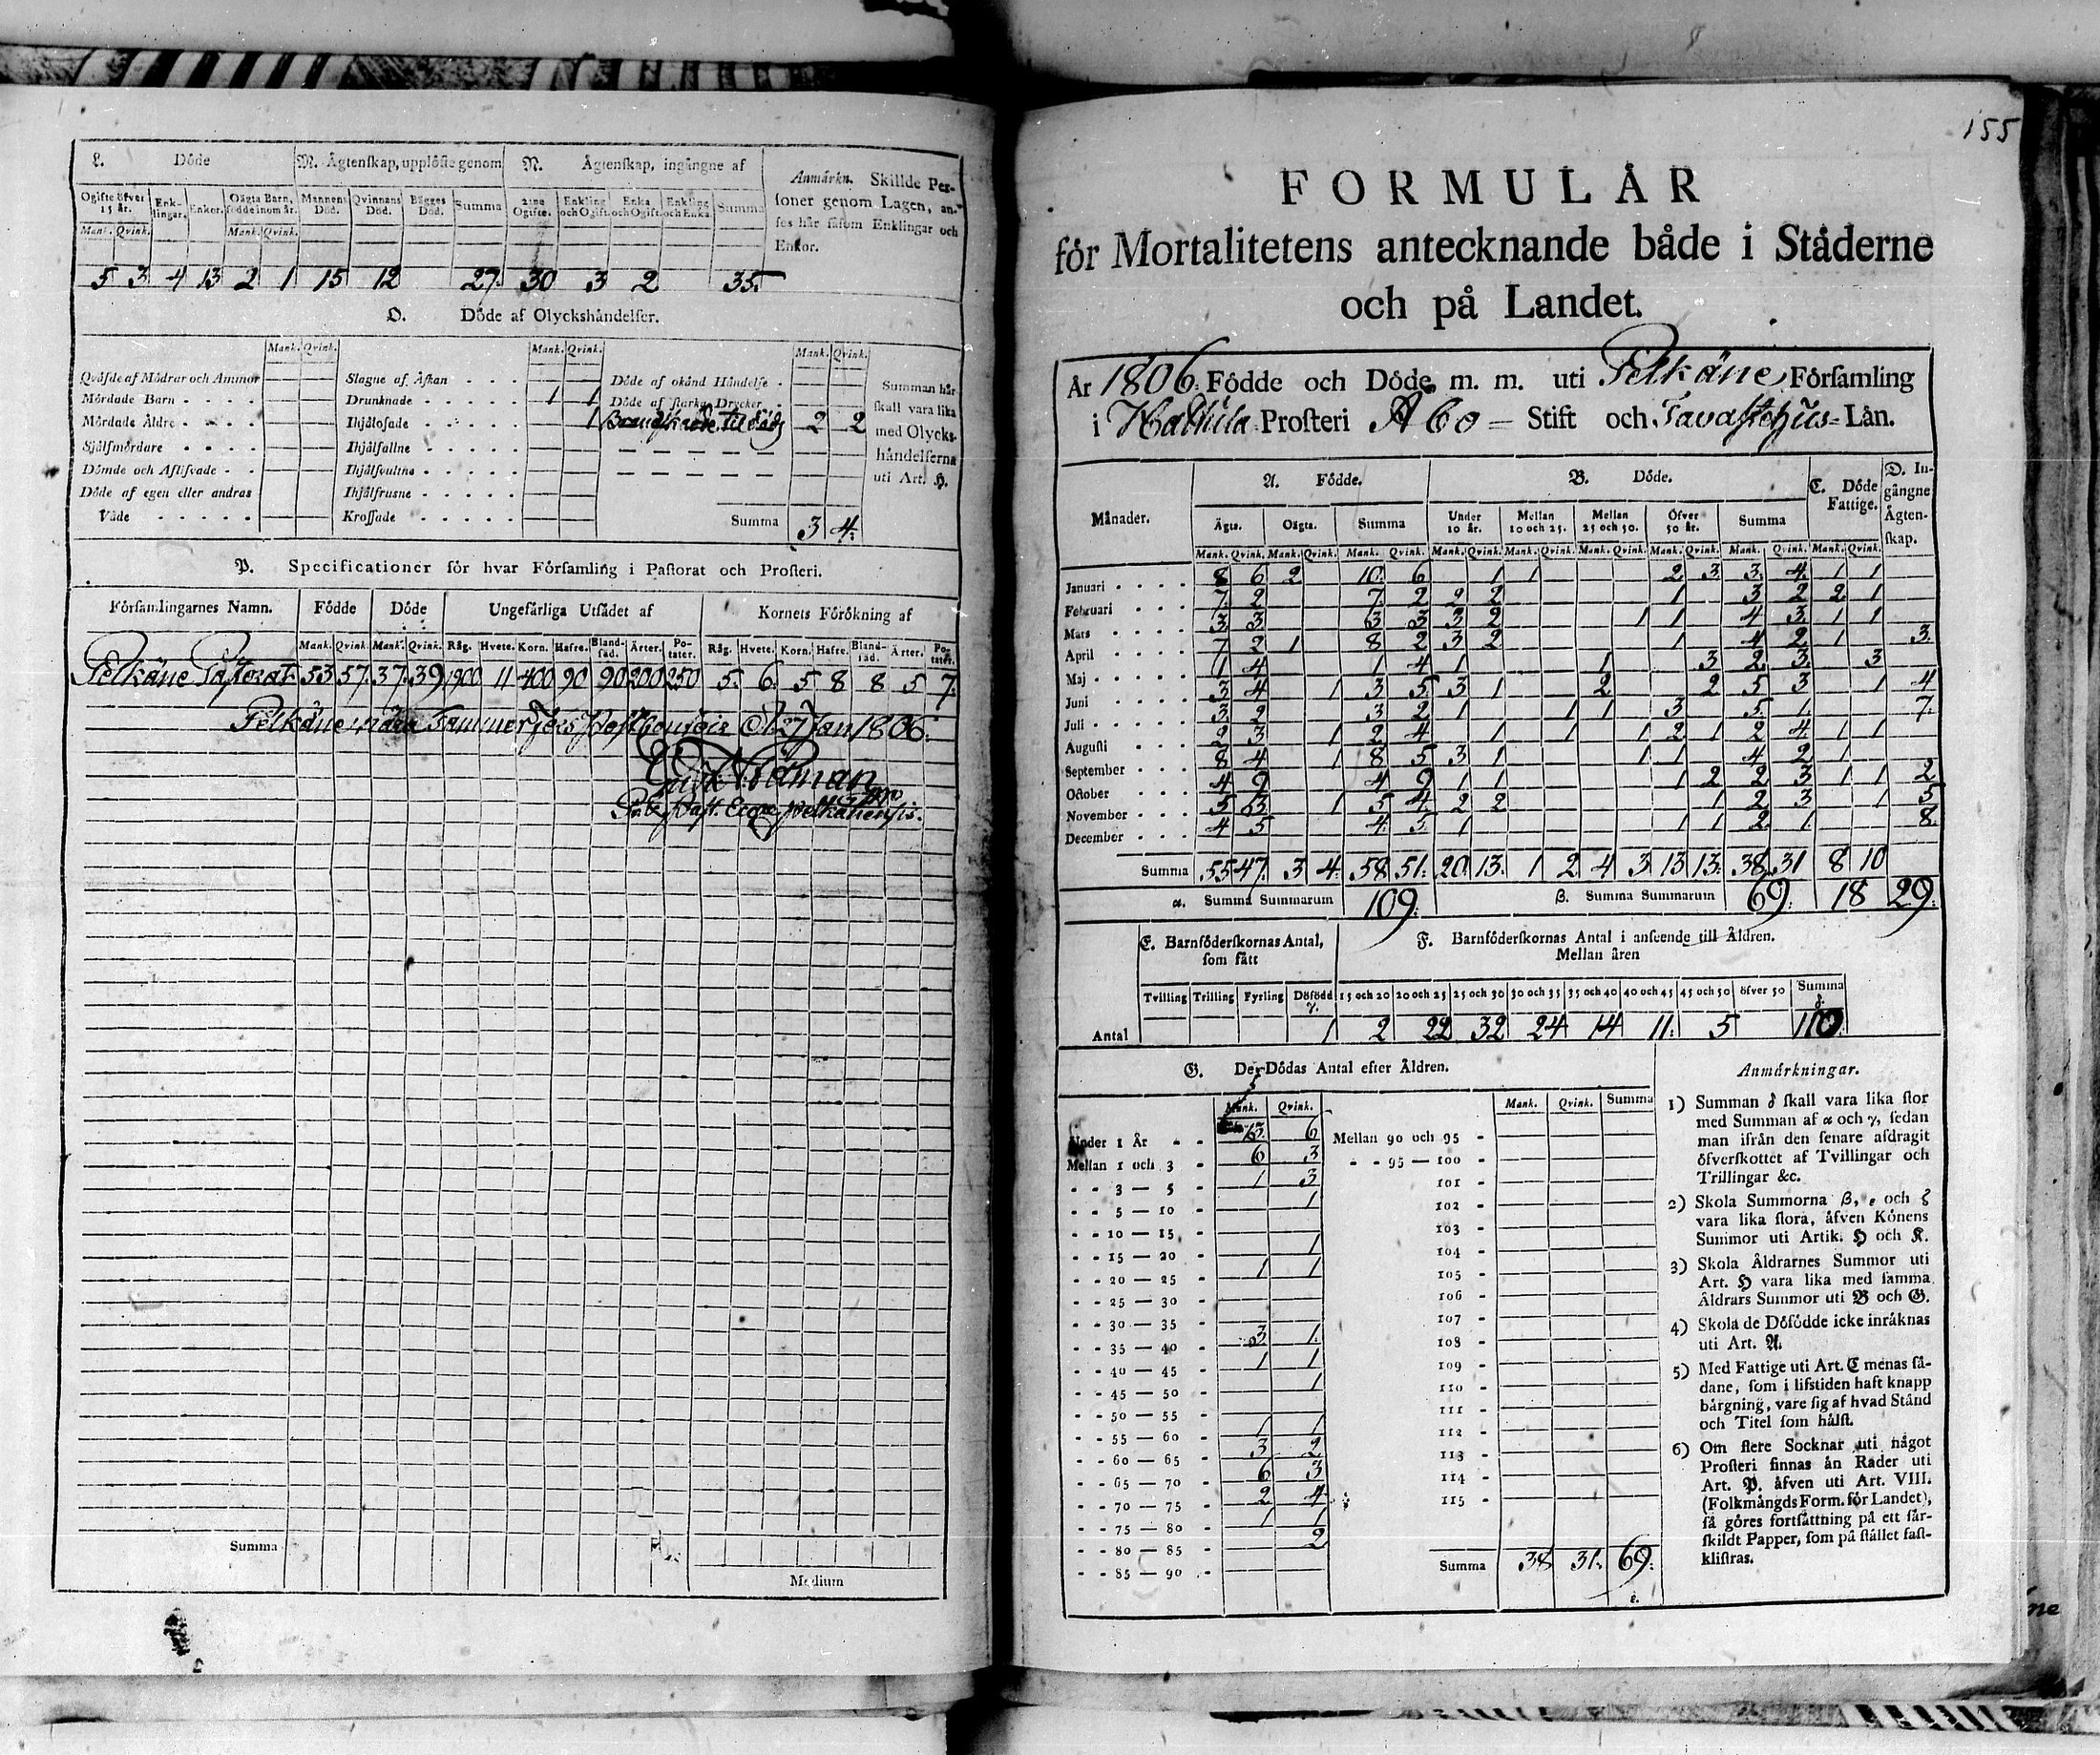 L. Döde M. Ägtenskap, upplöste genom N. Ägtenskap, ingångne af
Anmärkn. Skillde Personer genom Lagen, anses här såsom Enklingar och Enkor.
Ogifte öfver 15 år. Enklingar. Enkor. Oägta Barn, födde inom år. Mannens Död. Qvinnans Död. Bägges Död. Summa 2:ne Ogifte. Enkling och Ogift. Enka och Ogift. Enkling och Enka. Summa
Mank. Qvink. Mank. Qvink.
5 3 4 13 2 1 15 12 27. 30 3 2 35.
O. Döde af Olyckshändelser.
Mank. Qvink. Mank. Qvink. Mank. Qvink.
Qväfde af Mödrar och Ammor Slagne af Åskan . . . Döde af okänd Händelse .
Mördade Barn . . . . Drunknade . . . . . 1 1 Döde af starka Drycker .
Mördade Äldre . . . . Ihjälosade . . . . . 1 2 2
Sjelfmördare . . . . Ihjälfallne . . . . .
Dömde och Aflifvade . . Ihjälsvultne . . . .
Döde af egen eller andras Ihjälfrusne . . . . .
Våde . . . . . Krossade . . . . . Summa 3 4.
Summan här skall vara lika med Olyckshändelserna uti Art. H.
P. Specificationer för hvar Församling i Pastorat och Prosteri.
Församlingarnes Namn. Födde Döde Ungefärliga Utsädet af Kornets Förökning af
Mank. Qvink. Mank. Qvink. Råg. Hvete. Korn. Hafre. Blandsäd. Ärter. Potater. Råg. Hvete. Korn. Hafre. Blandsäd. Ärter. Potater.
Pelkäne Pastorat. 53 57. 37. 39 1900 11 400 90 90 200 250 5. 6. 5 8 8 5 7.
Jan 1806.
Summa
Medium
155
FORMULÄR
för Mortalitetens antecknande både i Städerne
och på Landet.
År 1806. Födde och Döde m. m. uti Pelkäne Församling
i Hattula Prosteri Åbo = Stift och Tavastehus = Län.
A. Födde. B. Döde. C. Döde Fattige. D. Ingångne Ägtenskap.
Månader. Ägta. Oägta. Summa Under 10 år. Mellan 10 och 25. Mellan 25 och 50. Öfver 50 år. Summa
Mank. Qvink. Mank. Qvink. Mank. Qvink. Mank. Qvink. Mank. Qvink. Mank. Qvink. Mank. Qvink. Mank. Qvink. Mank. Qvink.
Januari . . . . 8 6 2 10. 6 1 1 2 3 3. 4. 1 1
Februari . . . 7. 2 7. 2 2 2 1 3 2 2 1
Mars . . . . 3 3 3 3 3 2 1 1 4 3 1 1
April . . . . 7 2 1 8 2 3 2 1 4 2 1 3.
Maj . . . . 1 4 1 4 1 1 3 2 3 3
Juni . . . . 3 4 1 3 5 3 1 2 2 5 3 1 4
Juli . . . . 3 2 3 2 1 1 1 3 5 1 7.
Augusti . . . 2 3 1 2 4 1 1 1 2 1 2 4 1 1
September . . . 8 4 1 8 5 3 1 1 1 4 2 1
October . . . 4 9 4 9 1 1 1 2 2 3 1 1 2
November . . . 5 3 1 5 4 2 2 1 2 3 1 5
December . . . 4 5 4. 5. 1 1 1 2 1 8.
Summa 55 47. 3 4. 58. 51. 20. 13. 1 2 4 3. 13 13. 38 31 8 10
α. Summa Summarum 109. β. Summa Summarum 69. 18 29.
E. Barnföderskornas Antal, som fått F. Barnföderskornas Antal i anseende till Åldren.
Mellan åren
Tvilling Trilling Fyrling Döfödd γ. 15 och 20 20 och 25 25 och 30 30 och 35 35 och 40 40 och 45 45 och 50 öfver 50 Summa δ.
Antal 1 2 22 32 24 14 11. 5 110.
G. De Dödas Antal efter Åldren.
Mank. Qvink. Mank. Qvink. Summa
Under 1 År - - 13. 6 Mellan 90 och 95 -
Mellan 1 och 3 - 6 3 - - 95 — 100 -
- - 3 — 5 - 1 3 101 -
- - 5 — 10 - 1 102 -
- - 10 — 15 - 103 -
- - 15 — 20 - 1 104 -
- - 20 — 25 - 1 1 105 -
- - 25 — 30 - 106 -
- - 30 — 35 - 107 -
- - 35 — 40 - 3 1. 108 -
- - 40 — 45 - 1 1 109 -
- - 45 — 50 - 1 110 -
- - 50 — 55 - 111 -
- - 55 — 60 - 1 1 112 -
- - 60 — 65 - 3 2 113 -
- - 65 — 70 - 6 3 114 -
- - 70 — 75 - 2 4 115 -
- - 75 — 80 - 1 1
- - 80 — 85 - 2
- - 85 — 90 - Summa 38 31. 69.
ε.
Anmärkningar.
1) Summan δ skall vara lika stor
med Summan af α och γ, sedan
man ifrån den senare afdragit
öfverskottet af Tvillingar och
Trillingar &c.
2) Skola Summorna β, ε och ζ
vara lika stora, äfven Könens
Summor uti Artik. H och K.
3) Skola Åldrarnes Summor uti
Art. H vara lika med samma
Åldrars Summor uti B och G.
4) Skola de Döfödde icke inräknas
uti Art. A.
5) Med Fattige uti Art. C menas sådane,
som i lifstiden haft knapp
bärgning, vare sig af hvad Stånd
och Titel som hälst.
6) Om flere Socknar uti något
Prosteri finnas än Rader uti
Art. P. äfven uti Art. VIII.
(Folkmängds Form. för Landet),
så göres fortsättning på ett särskildt
Papper, som på stället fastklistras.